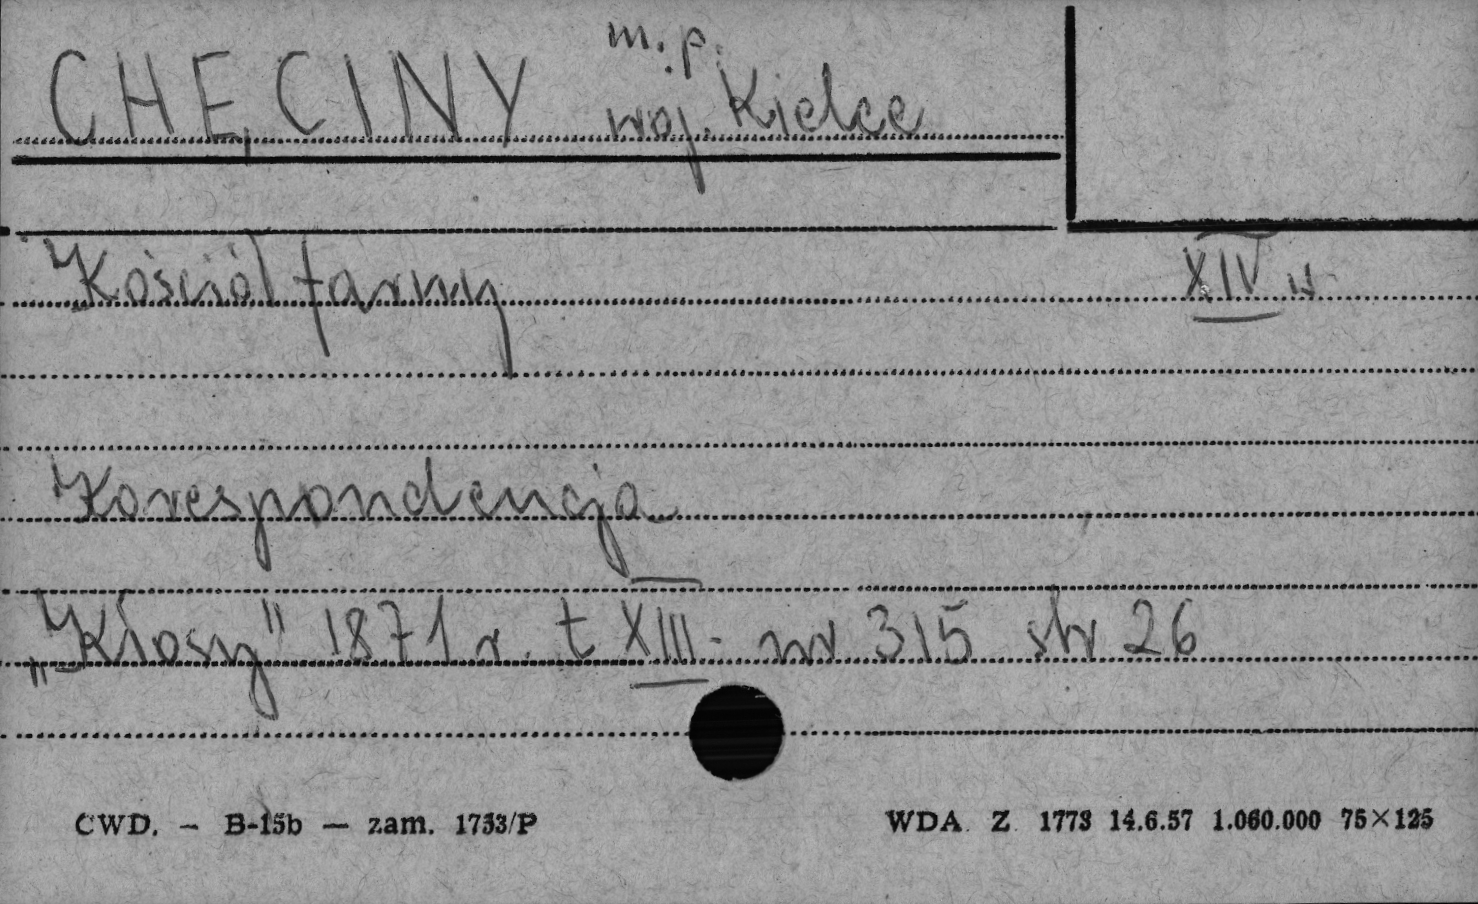 CHĘCINY m.p.
woj. Kielce
Kościół farny XIV w
Korespondencja
„Kłosy" 1871 r. t XIII - nr 315 str 26
CWD. — B-15b — zam. 1733/P WDA. Z. 1773 14.6.57 1.060.000 75×125